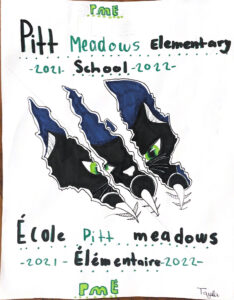 PME
Pitt Meadows Elementary
-2021- School -2022-
École Pitt meadows
-2021- Élémentaire -2022-
PME